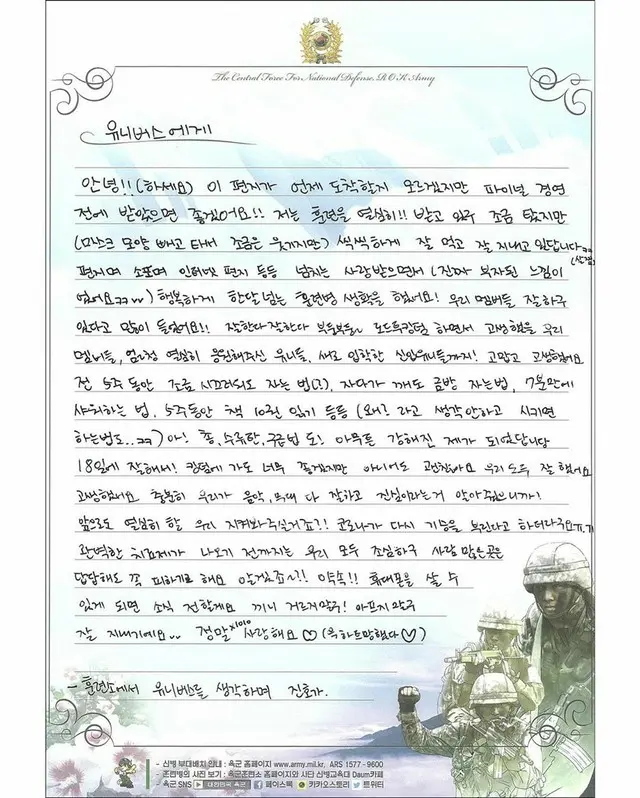 The Central Force For National Defense, R O K Army
유니버스에게
안녕!! (하세요) 이 편지가 언제 도착할지 모르겠지만 파이널 경연
전에 받았으면 좋겠어요!! 저는 훈련을 열심히!! 받고 있구 조금 탔지만
(마스크 모양 빼고 타서 조금은 웃기지만) 씩씩하게 잘 먹고 잘 지내고 있답니다ㅋㅋ
편지며 소포며 인터넷 편지 등등 넘치는 사랑받으면서 (진짜 부자된 느낌이
었어요ㅋㅋㅠㅠ) 행복하게 한달 넘는 훈련병 생활을 했어요! 우리 멤버들 잘하구
있다고 많이 들었어요!! 잘한다잘한다 부둥부둥~ 로드투킹덤 하면서 고생했을 우리
멤버들, 엄청 열심히 응원해주신 유니들, 새로 입학한 신입유니들까지! 고맙고 고생했어요
전 5주 동안 조금 시끄러워도 자는 법(?), 자다가 깨도 금방 자는 법, 7분만에
샤워하는 법, 5주동안 책 10권 읽기 등등 (왜? 라고 생각 안하고 시키면
하는법도..ㅋㅋ) 아! 총, 수류탄, 구급법 도! 아무튼 강해진 제가 되었답니당
18일에 잘해서! 킹덤에 가도 너무 좋겠지만 아니어도 괜찮아요 우리 모두 잘 했어요
고생했어요. 충분히 우리가 음악, 무대 다 잘하고 진심이라는거 알아줬으니까!
앞으로도 열심히 할 우리 지켜봐주실거죠?! 코로나가 다시 기승을 부린다고 하더라구요ㅠㅠ
완벽한 치료제가 나오기 전까지는 우리 모두 조심하구 사람 많은곳은
답답해도 꼭 피하기로 해요 알겠죠~?! 약속!! 휴대폰을 쓸 수
있게 되면 소식 전할게요 끼니 거르지말구! 아프지 말구
잘 지내기예요~ 정말×1010 사랑해요♡ (윽 하트망했다♡)
- 훈련소에서 유니버스를 생각하며 진호가.
- 신병 부대배치 안내 : 육군 홈페이지 www.army.mil.kr, ARS 1577 - 9600
- 훈련병의 사진 보기 : 육군훈련소 홈페이지와 사단 신병교육대 Daum카페
- 육군 SNS 대한민국 육군 페이스북 카카오스토리 트위터